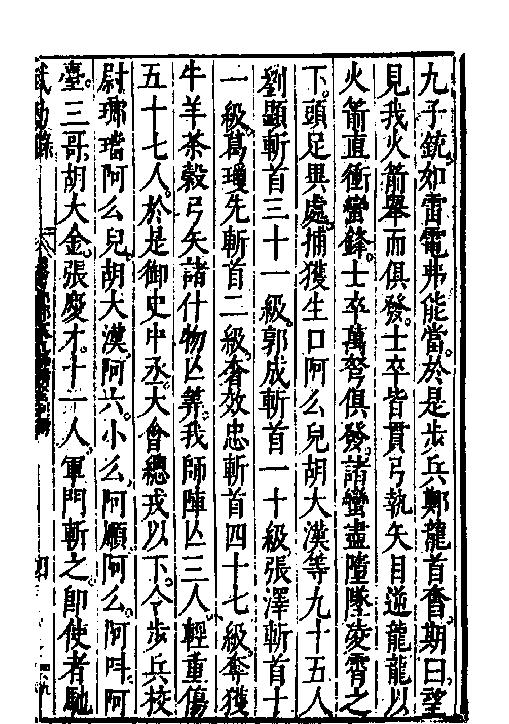 九子銃如雷電弗能當於是步兵鄭龍首奮期曰望
見我火箭舉而俱發士卒皆貫弓執矢目逆龍龍以
火箭直衝蠻鋒士卒萬弩俱發諸蠻盡墮墜凌霄之
下頭足異處捕獲生口阿么兒胡大漢等九十五人
劉顯斬首三十一級郭成斬首一十級張澤斬首十
一級葛瓊先斬首二級奢效忠斬首四十七級奪獲
牛羊茶穀弓矢諸什物亡筭我師陣亡三人輕重傷
五十七人於是御史中丞大會總戎以下令步兵校
尉瑯璫阿么兒胡大漢阿六小么阿願阿么阿呌阿
臺三哥胡大金張慶才十二人軍門斬之即使者馳
武功錄